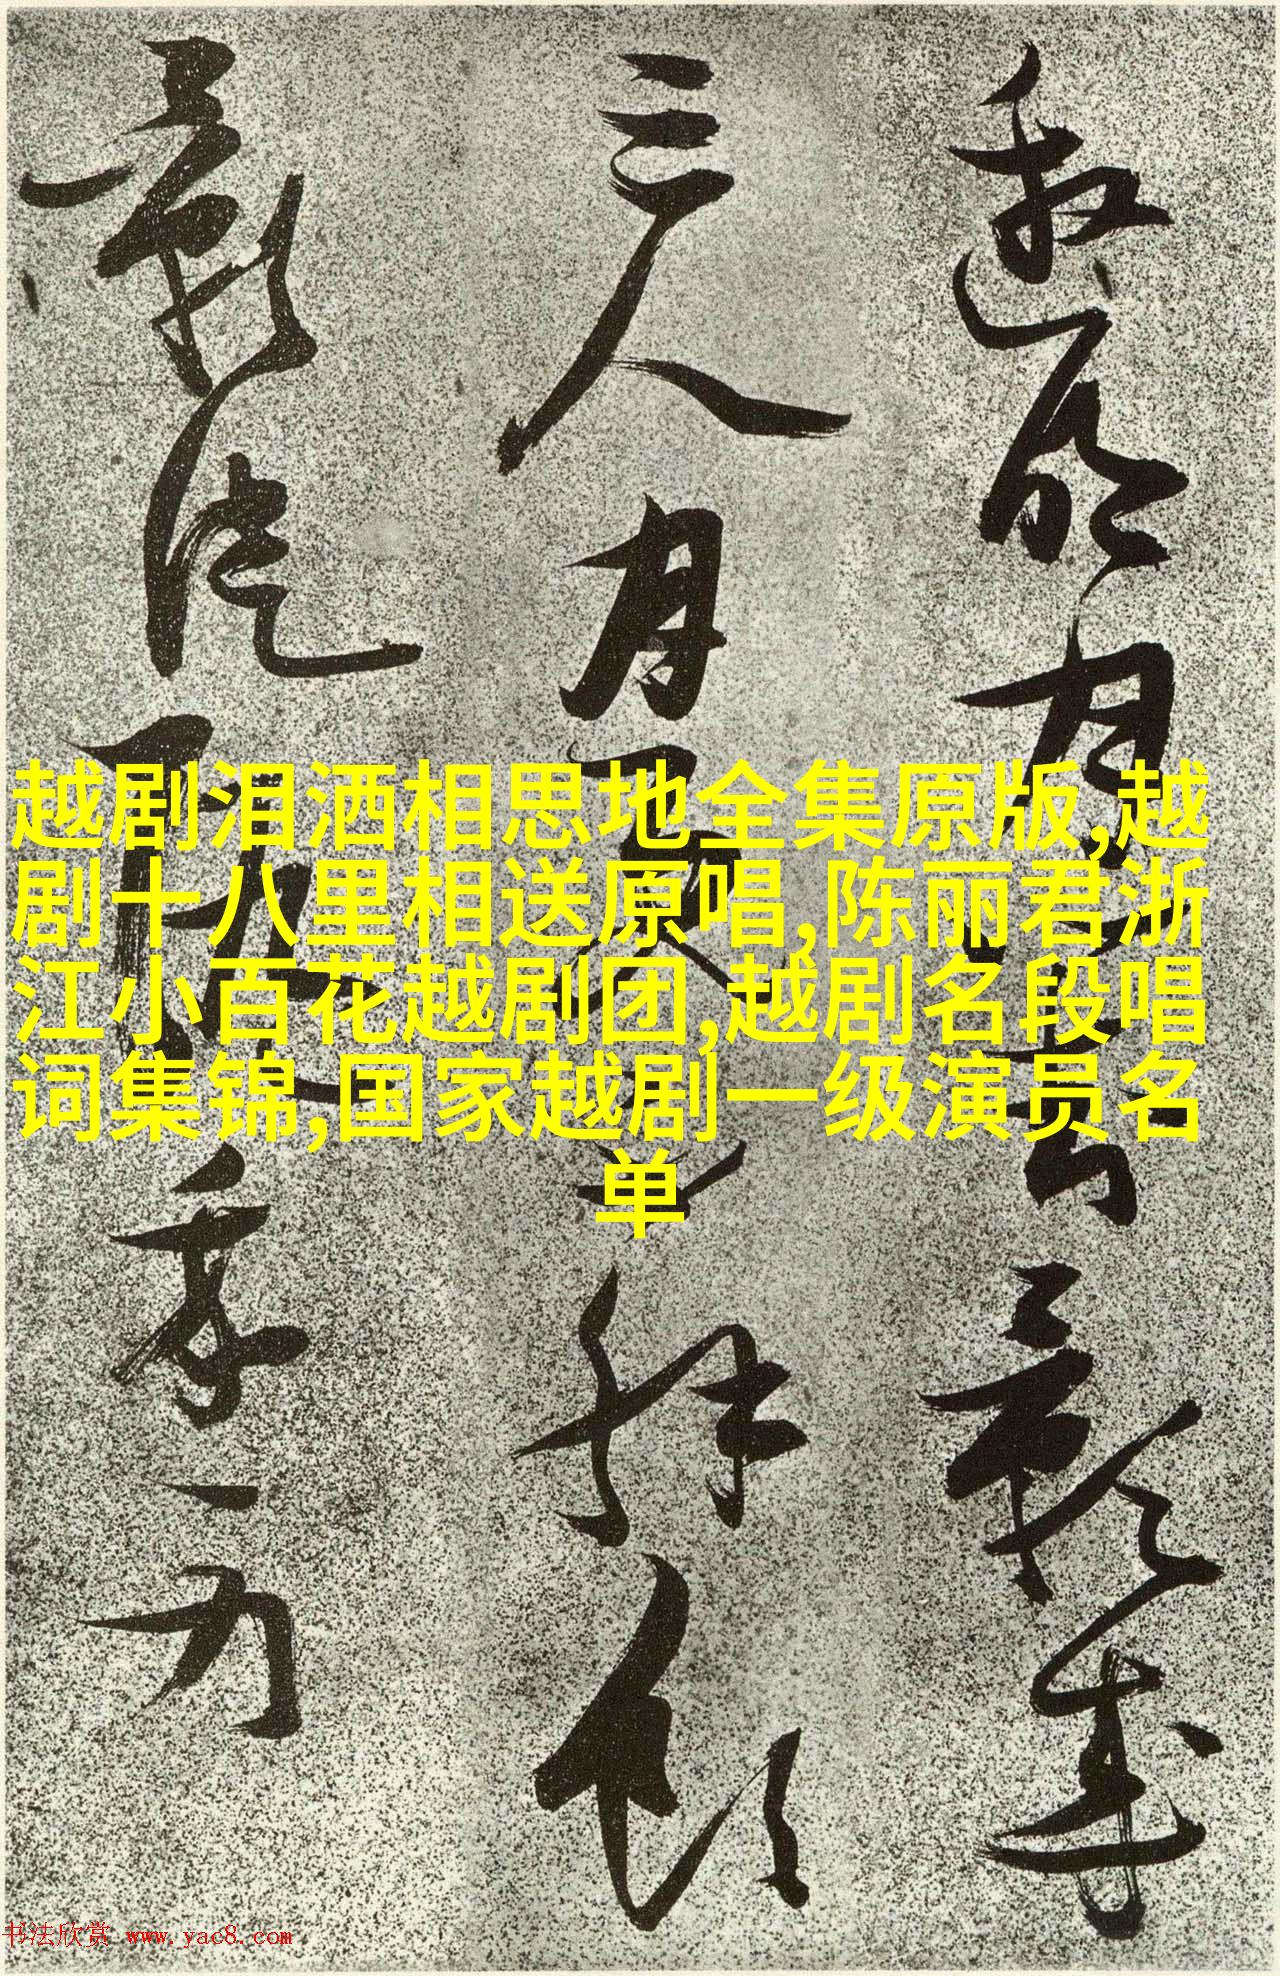 邀明月影成
三人月不解飲
影徒
越剧泪洒相思地全集原版,越
剧十八里相送原唱,陈丽君浙
江小百花越剧团,越剧名段唱
词集锦,国家越剧一级演员名
单
书法欣赏 www.yac8.com